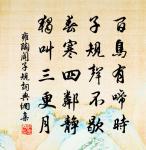 百鳥有啼時
子規聲不歇
春寒四鄰靜
獨叫三更月
雍陶聞子規詞典網集